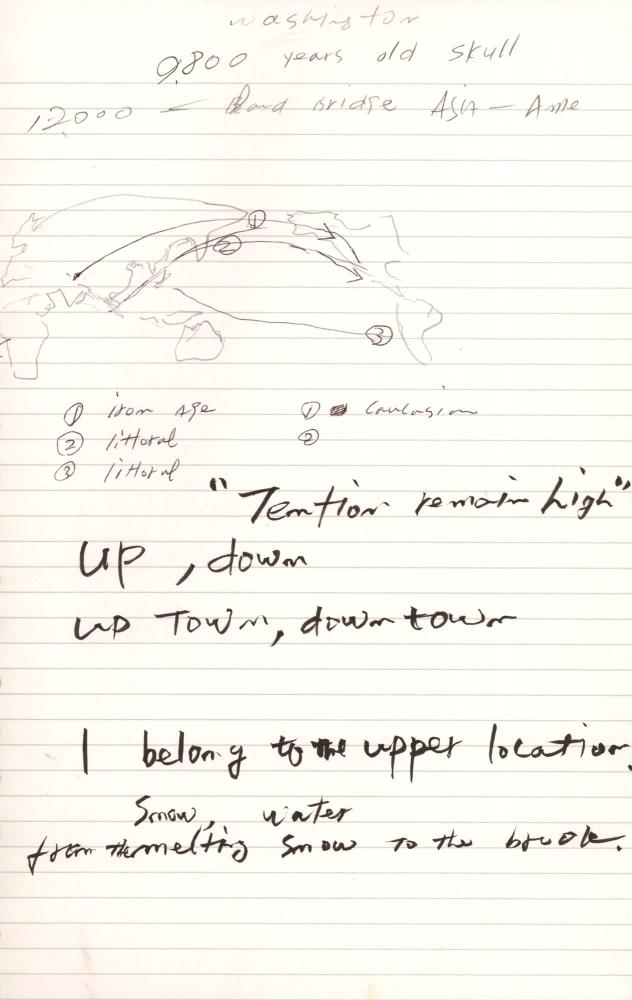 washington
9800 years old skull
12000 – Land Bridge Asia – Ame
① ② ③
① iron Age ① Caucasian
② littoral ②
③ littoral
"Tention remain high"
up , down
up Town, downtown
I belong to the upper location.
Snow, water
from the melting snow to the brook.